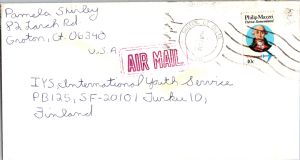 Pamela Shirley
82 Larch Rd
Groton, Ct 06340
U.S.A.
Philip Mazzei
Patriot Remembered
40c
AIR MAIL
IYS, International Youth Service
PB125, SF-20101 Turku 10,
Finland